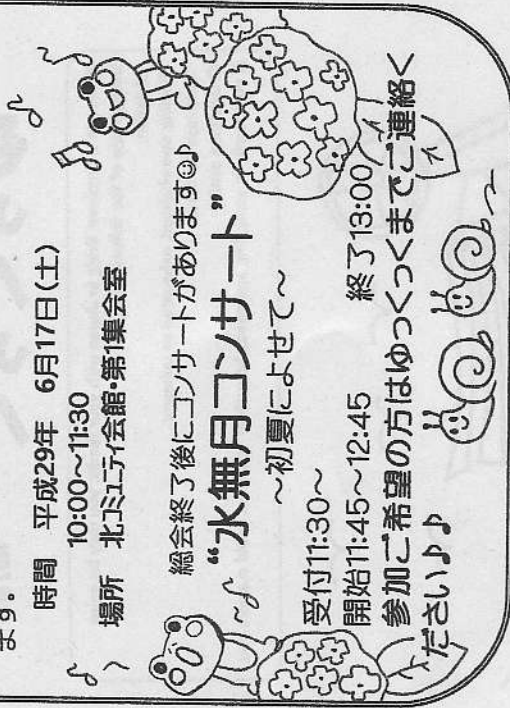 ます。
時間　平成29年　6月17日(土)
10:00～11:30
場所　北コミュニティ会館・第1集会室
総会終了後にコンサートがあります☺♪
“水無月コンサート”
～初夏によせて～
受付11:30～
開始11:45～12:45　終了13:00
参加ご希望の方はゆっくっくまでご連絡く
ださい♪♪